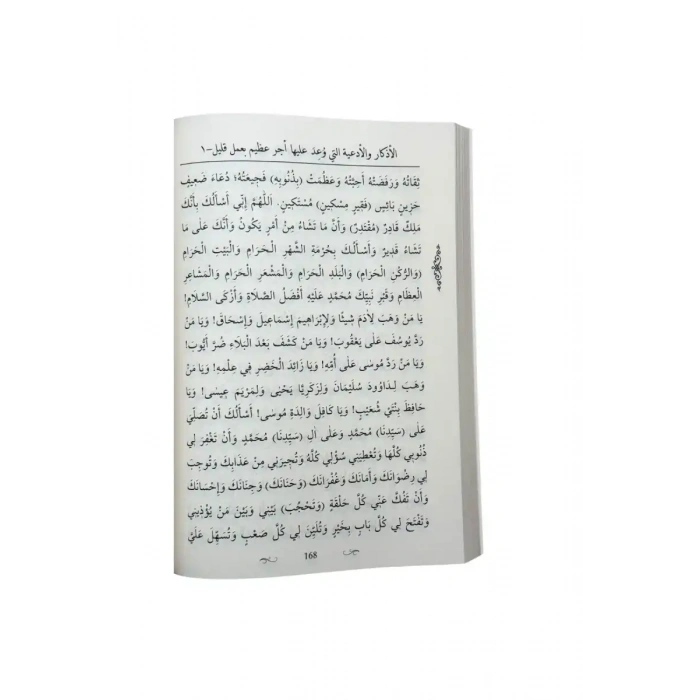 الأذكار والأدعية التي وُعِدَ عليها أجر عظيم بعمل قليل-١
ثِقَاتُهُ وَرَفَضَتْهُ أَحِبَّتُهُ وَعَظُمَتْ (بِذُنُوبِهِ) فَجِيعَتُهُ؛ دُعَاءَ ضَعِيفٍ
حَزِينٍ بَائِسٍ (فَقِيرٍ مِسْكِينٍ) مُسْتَكِينٍ. اَللّٰهُمَّ إِنِّي أَسْأَلُكَ بِأَنَّكَ
مَلِكٌ قَادِرٌ (مُقْتَدِرٌ) وَأَنَّ مَا تَشَاءُ مِنْ أَمْرٍ يَكُونُ وَأَنَّكَ عَلَى مَا
تَشَاءُ قَدِيرٌ وَأَسْأَلُكَ بِحُرْمَةِ الشَّهْرِ الْحَرَامِ وَالْبَيْتِ الْحَرَامِ
(وَالرُّكْنِ الْحَرَامِ) وَالْبَلَدِ الْحَرَامِ وَالْمَشْعَرِ الْحَرَامِ وَالْمَشَاعِرِ
الْعِظَامِ وَقَبْرِ نَبِيِّكَ مُحَمَّدٍ عَلَيْهِ أَفْضَلُ الصَّلَاةِ وَأَزْكَى السَّلَامِ!
يَا مَنْ وَهَبَ لِآدَمَ شِيثًا وَلِإِبْرَاهِيمَ إِسْمَاعِيلَ وَإِسْحَاقَ! وَيَا مَنْ
رَدَّ يُوسُفَ عَلَى يَعْقُوبَ! وَيَا مَنْ كَشَفَ بَعْدَ الْبَلَاءِ ضُرَّ أَيُّوبَ!
وَيَا مَنْ رَدَّ مُوسَى عَلَى أُمِّهِ! وَيَا زَائِدَ الْخَضِرِ فِي عِلْمِهِ! وَيَا مَنْ
وَهَبَ لِدَاوُودَ سُلَيْمَانَ وَلِزَكَرِيَّا يَحْيَى وَلِمَرْيَمَ عِيسَى! وَيَا
حَافِظَ بِنْتَيْ شُعَيْبٍ! وَيَا كَافِلَ وَالِدَةِ مُوسَى! أَسْأَلُكَ أَنْ تُصَلِّيَ
عَلَى (سَيِّدِنَا) مُحَمَّدٍ وَعَلَى اٰلِ (سَيِّدِنَا) مُحَمَّدٍ وَأَنْ تَغْفِرَ لِي
ذُنُوبِي كُلَّهَا وَتُعْطِيَنِي سُؤْلِي كُلَّهُ وَتُجِيرَنِي مِنْ عَذَابِكَ وَتُوجِبَ
لِي رِضْوَانَكَ وَأَمَانَكَ وَغُفْرَانَكَ (وَحَنَانَكَ) وَجِنَانَكَ وَإِحْسَانَكَ
وَأَنْ تَفُكَّ عَنِّي كُلَّ حَلْقَةٍ (وَتَحْجُبَ) بَيْنِي وَبَيْنَ مَنْ يُؤْذِينِي
وَتَفْتَحَ لِي كُلَّ بَابٍ بِخَيْرٍ وَتُلَيِّنَ لِي كُلَّ صَعْبٍ وَتُسَهِّلَ عَلَيَّ
168